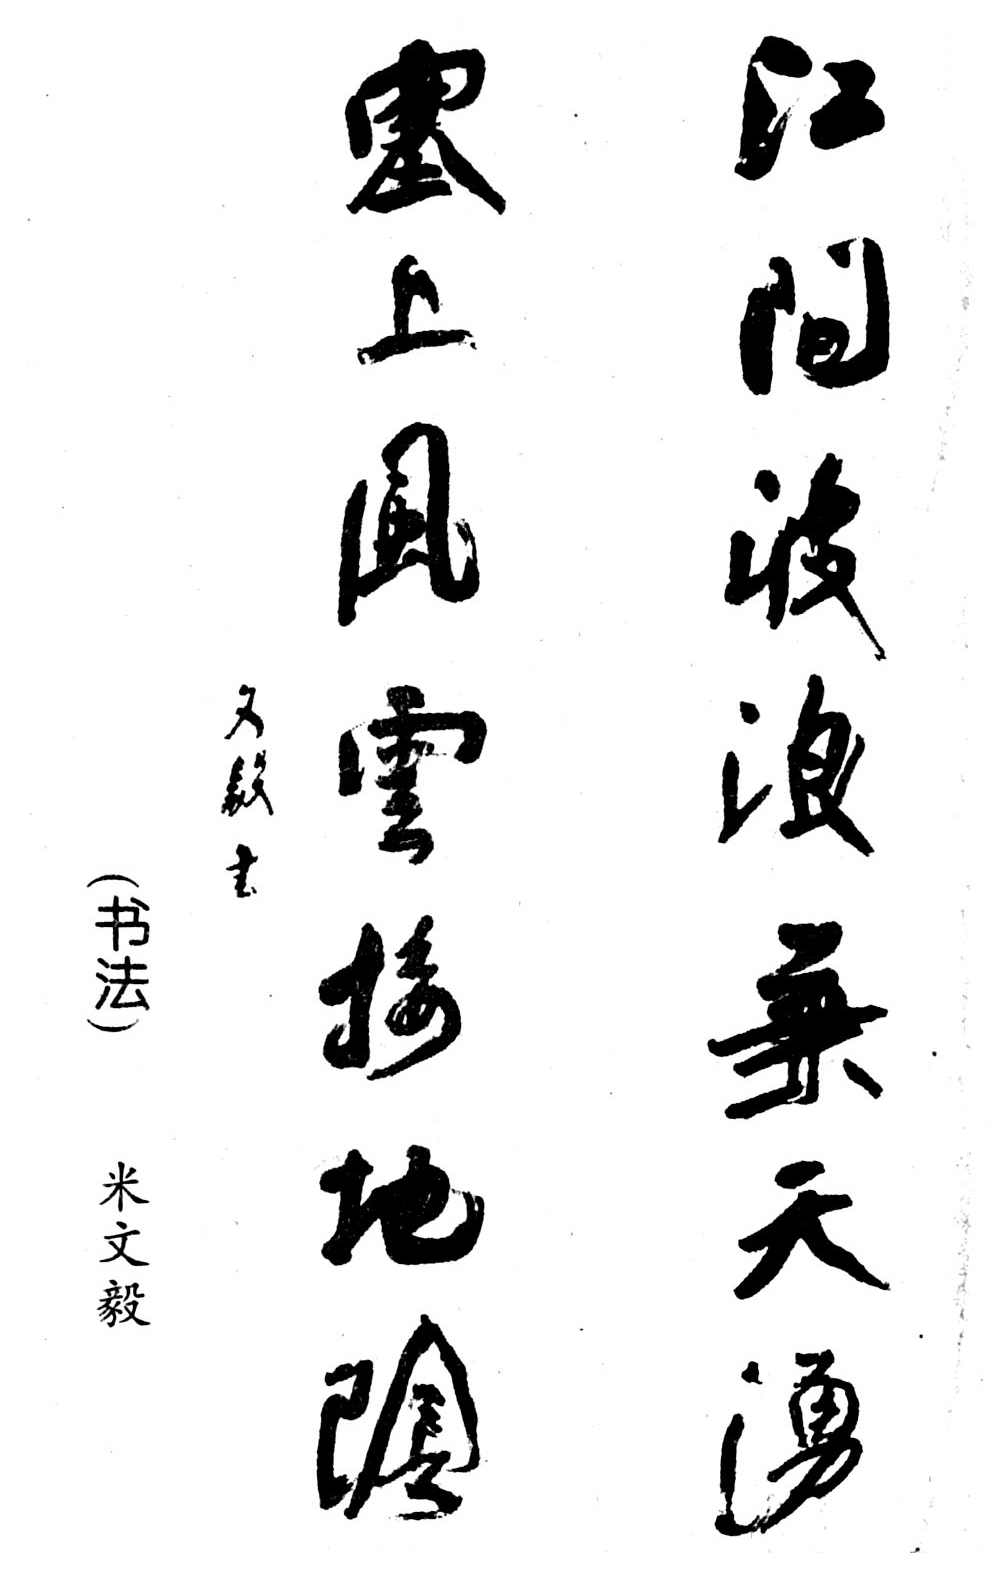 江間波浪兼天湧
塞上風雲接地陰
文毅书
(书法)
米文毅